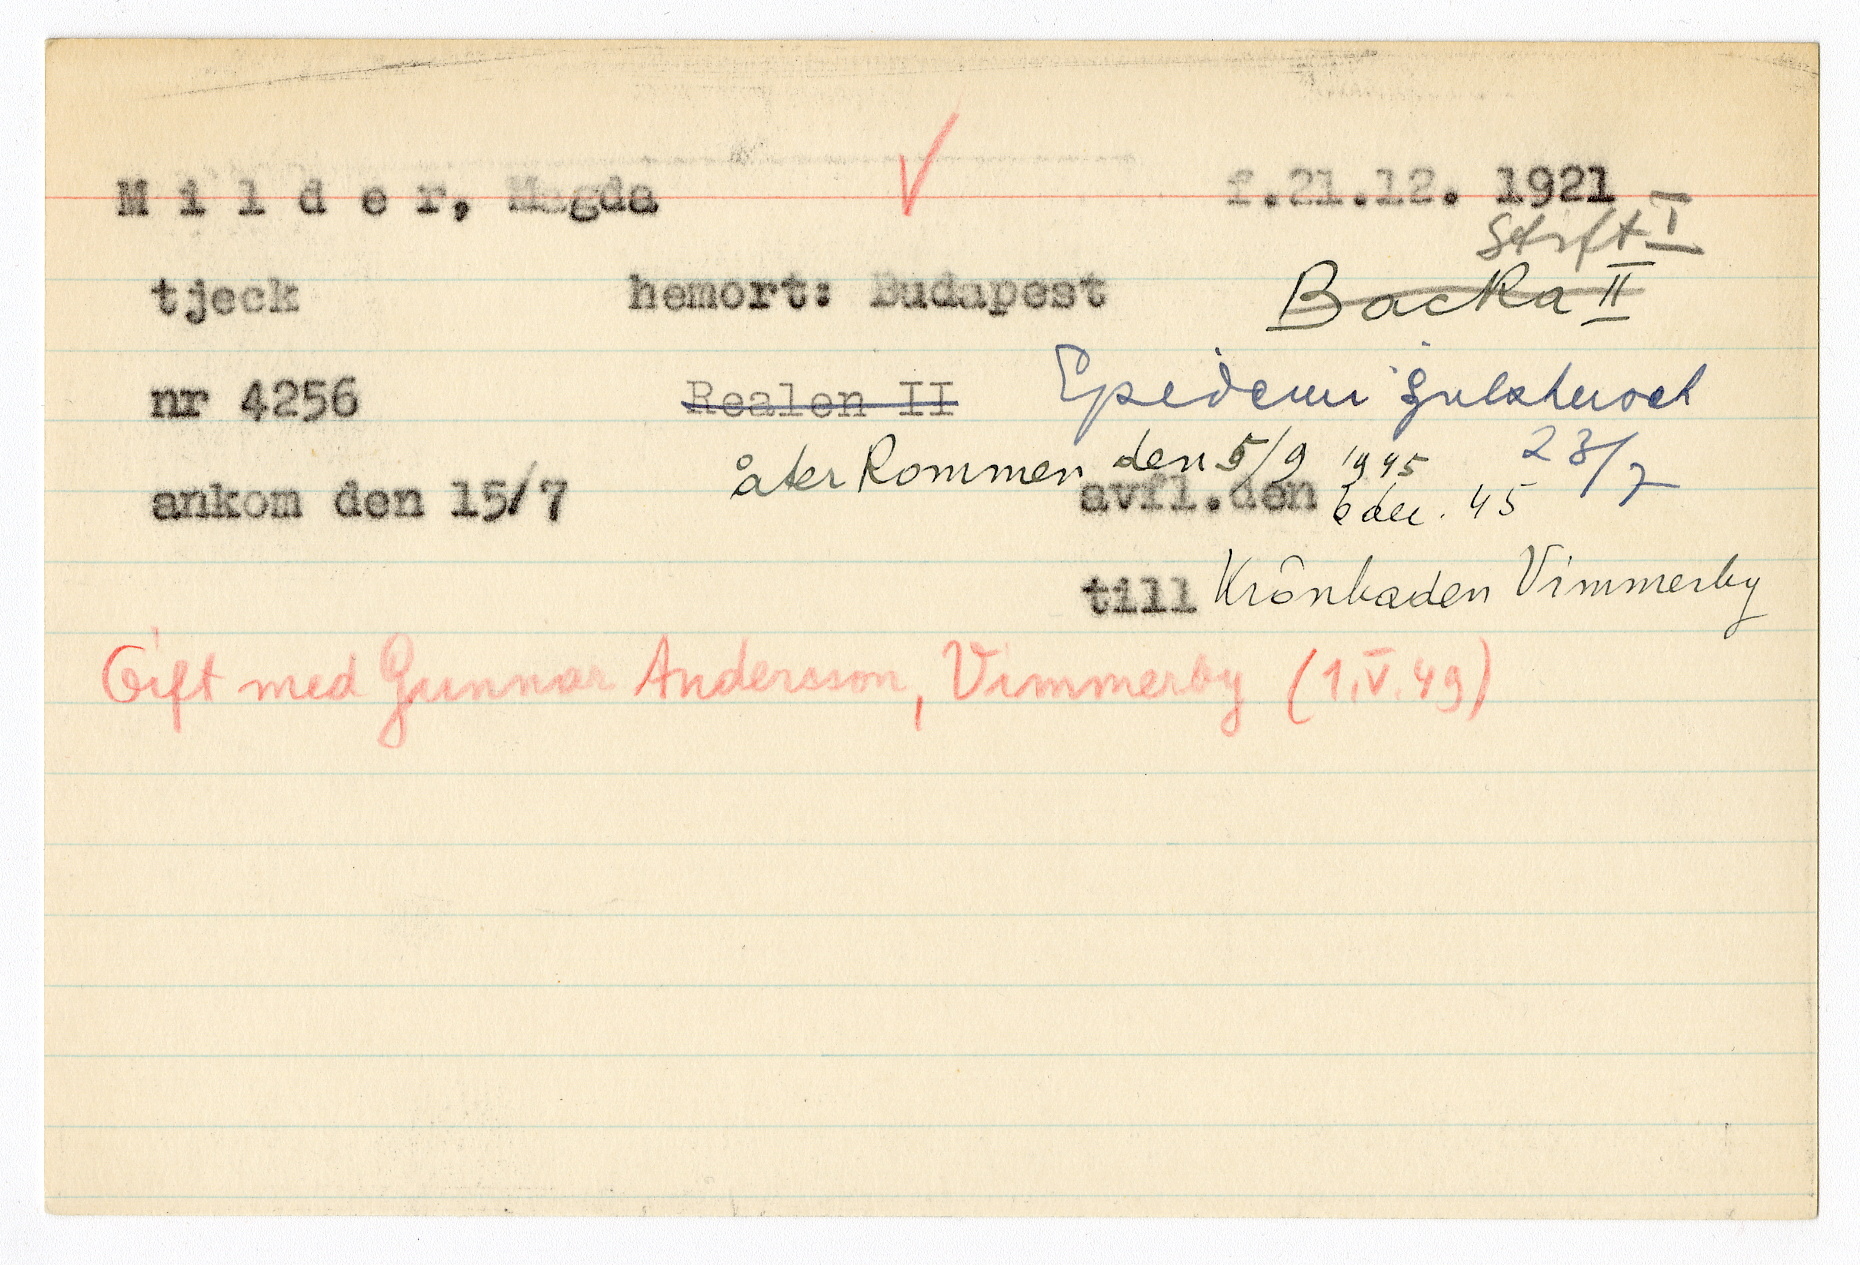 Milder, Magda f.21.12. 1921
Stift I
tjeck hemort: Budapest Backa II
nr 4256 Realen II Epidemisjukhuset
återkommen den 5/9 1945 23/7
ankom den 15/7 avfl.den 6 dec. 45
till Krönbaden Vimmerby
Gift med Gunnar Andersson, Vimmerby (1.V.49)